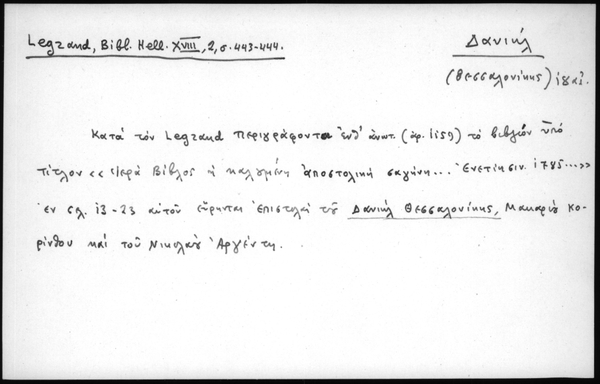 Legrand, Bibl. Hell. XVIII, 2, σ. 443-444.
Δανιήλ
(Θεσσαλονίκης)
Κατά τόν Legrand περιγράφοντα ἐνθ' ἀνωτ. (ἀρ. 1159) τό βιβλίον ὑπό
τίτλον «Ἱερά Βίβλος ἡ καλουμένη ἀποστολική σαγήνη... Ἐνετίησιν. 1785...»
ἐν σελ. 13-23 αὐτοῦ εὕρηνται ἐπιστολαί τοῦ Δανιήλ Θεσσαλονίκης, Μακαρίου Κο-
ρίνθου καί τοῦ Νικολάου Ἀργέντη.